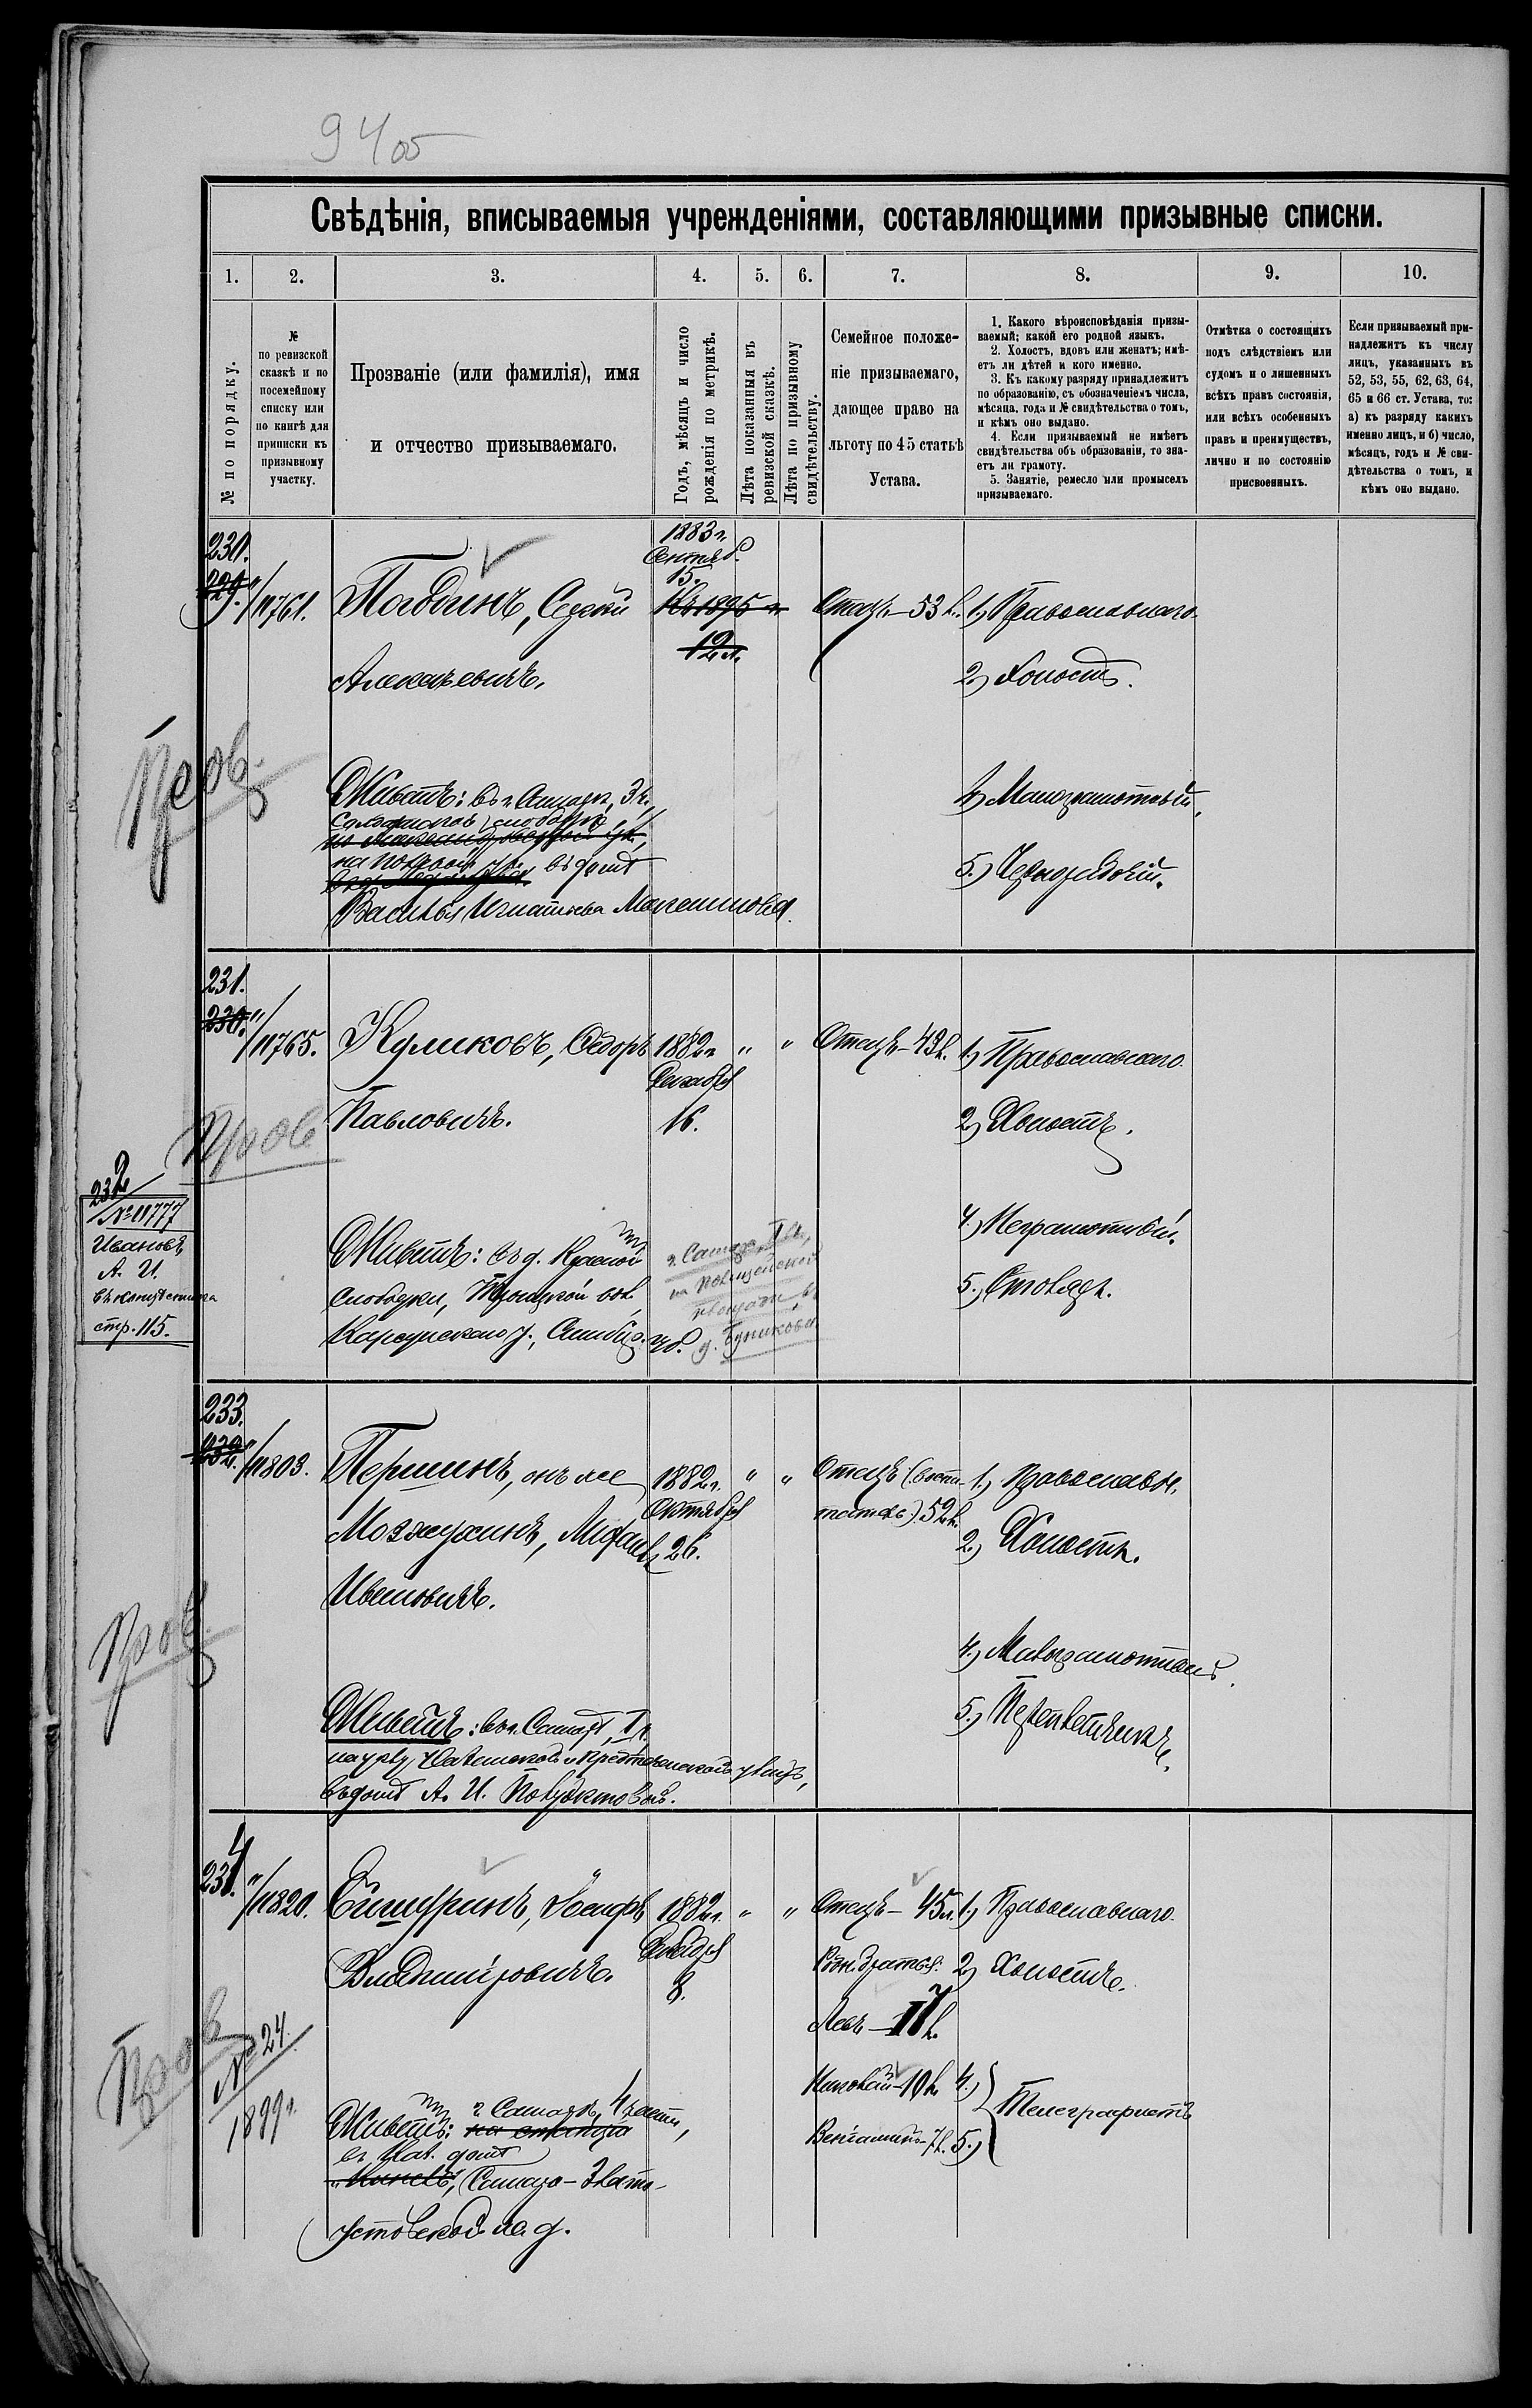 94об
Свѣдѣнія, вписываемыя учрежденіями, составляющими призывные списки.
1. 2. 3. 4. 5. 6. 7. 8. 9. 10.
№ по порядку.
№
по ревизской
сказкѣ и по
посемейному
списку или
по книгѣ для
приписки къ
призывному
участку.
Прозваніе (или фамилія), имя
и отчество призываемаго.
Годъ, мѣсяцъ и число
рожденія по метрикѣ.
Лѣта показанныя въ
ревизской сказкѣ.
Лѣта по призывному
свидѣтельству.
Семейное положе-
ніе призываемаго,
дающее право на
льготу по 45 статьѣ
Устава.
1. Какого вѣроисповѣданія призы-
ваемый; какой его родной языкъ.
2. Холостъ, вдовъ или женатъ; имѣ-
етъ ли дѣтей и кого именно.
3. Къ какому разряду принадлежитъ
по образованію, съ обозначеніемъ числа,
мѣсяца, года и № свидѣтельства о томъ,
и кѣмъ оно выдано.
4. Если призываемый не имѣетъ
свидѣтельства объ образованіи, то зна-
етъ ли грамоту.
5. Занятіе, ремесло или промыселъ
призываемаго.
Отмѣтка о состоящихъ
подъ слѣдствіемъ или
судомъ и о лишенныхъ
всѣхъ правъ состоянія,
или всѣхъ особенныхъ
правъ и преимуществъ,
лично и по состоянію
присвоенныхъ.
Если призываемый при-
надлежитъ къ числу
лицъ, указанныхъ въ
52, 53, 55, 62, 63, 64,
65 и 66 ст. Устава, то:
а) къ разряду какихъ
именно лицъ, и б) число,
мѣсяцъ, годъ и № сви-
дѣтельства о томъ, и
кѣмъ оно выдано.
230.
229.
"/11761.
Погодинъ, Сергѣй
Алексѣевичъ.
1883г.
Сентяб.
15.
Къ 1895 г.
12 л.
Отецъ - 53 л.
1) Православнаго
2) Холостъ.
4) Малограмотный.
5.) Чернорабочій.
Пров.
Живетъ: въ г. Самарѣ, 3 ч.,
слободкѣ,
на
въ домѣ
Василья Игнатьева
231.
230.
"/11765.
Куликовъ, Ѳедоръ
Павловичъ.
1882г
Декабря
16.
" "
Отецъ - 43 л.
1) Православнаго
2) Холостъ.
4.) Неграмотный.
5.) Столяръ.
Пров
Живетъ: въ д. Красной
слободки, Троицкой вол.,
Карсунскаго у., Симбир. губ.
г. Самара, I ч.,
на Полицейской
площади, въ
д.
232
№ 11777
Ивановъ,
А. И.
стр. 115.
233.
232.
"/11803.
Першинъ, онъ же
Мозжухинъ, Михаилъ
Ивановичъ.
1882г.
Октября
26.
" "
Отецъ (воспи-
татель) 52 л.
1.) Православн.
2.) Холостъ.
4.) Малограмотный.
5.) Переплетчикъ.
Пров.
Живетъ: въ г. Самарѣ, I ч.
на углу и Предтеченской улицъ,
въ домѣ А. И.
234.
"/11820.
Владиміровичъ.
1882г.
Декабря
8.
" "
Отецъ - 45 л.
Родн. братья:
Левъ - 17 л.
Николай - 10 л.
Веніаминъ - 7 л.
1.) Православнаго
2.) Холостъ.
4.)
5.)
Телеграфистъ
Пров
№ 24.
1899 г.
Живетъ: г. Самарѣ, 4 части,
на станціи
въ Каз. домѣ
Самаро-Злато-
устовской ж. д.